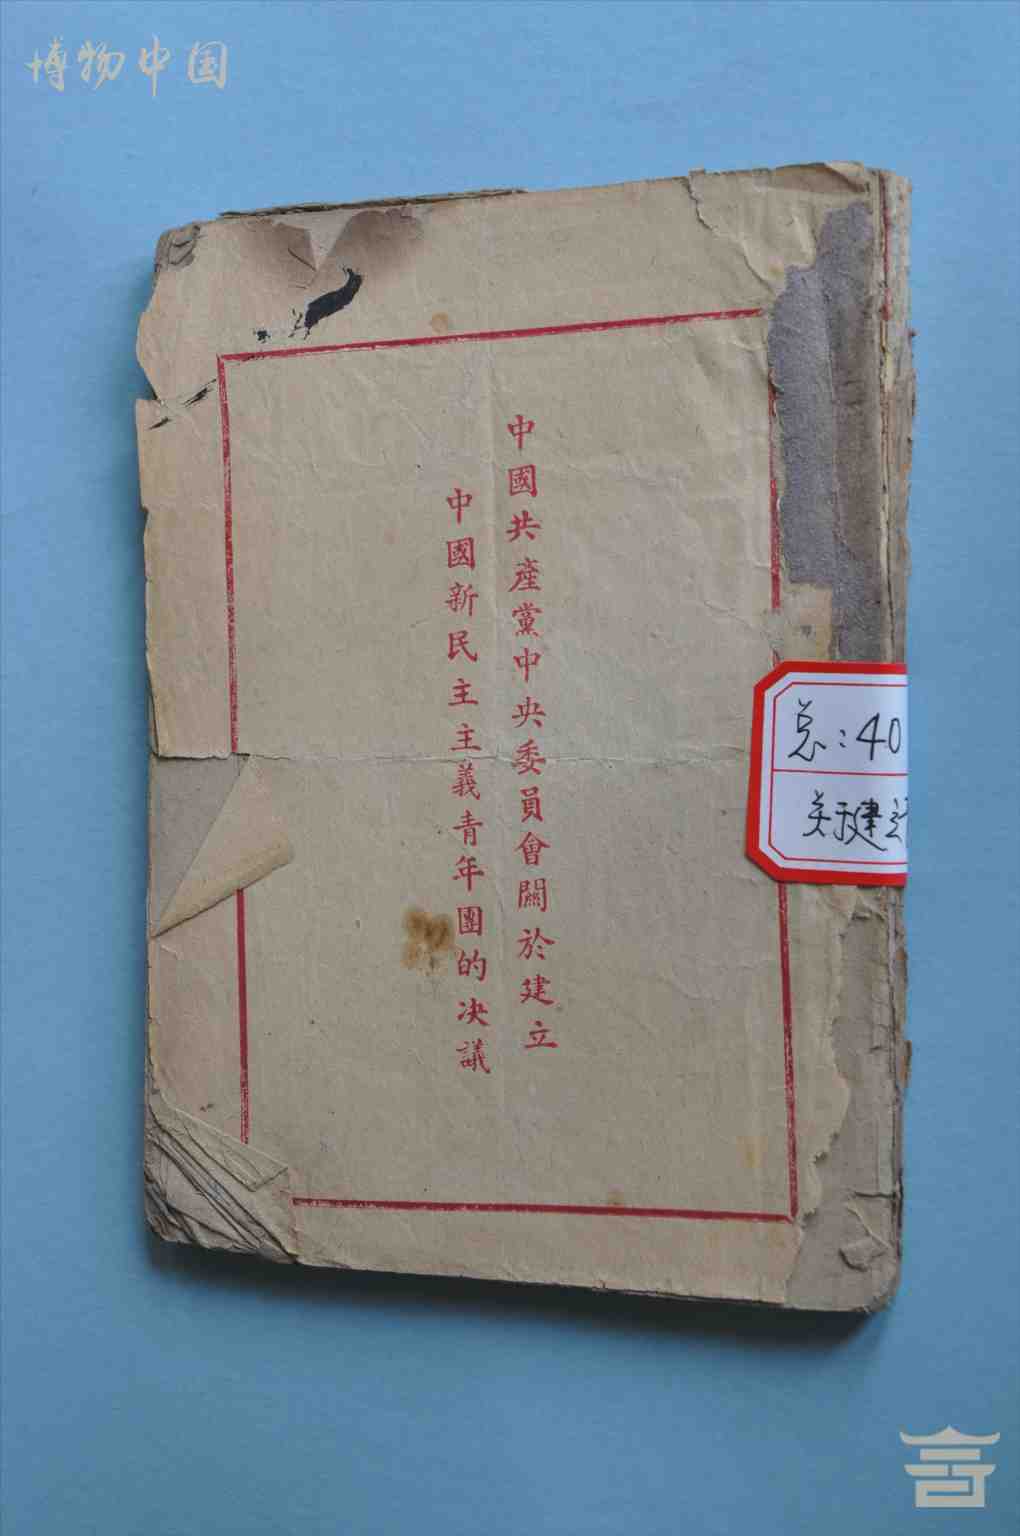 博物中国
中國共產黨中央委員會關於建立
中國新民主主義青年團的决議
总:40
关于建立